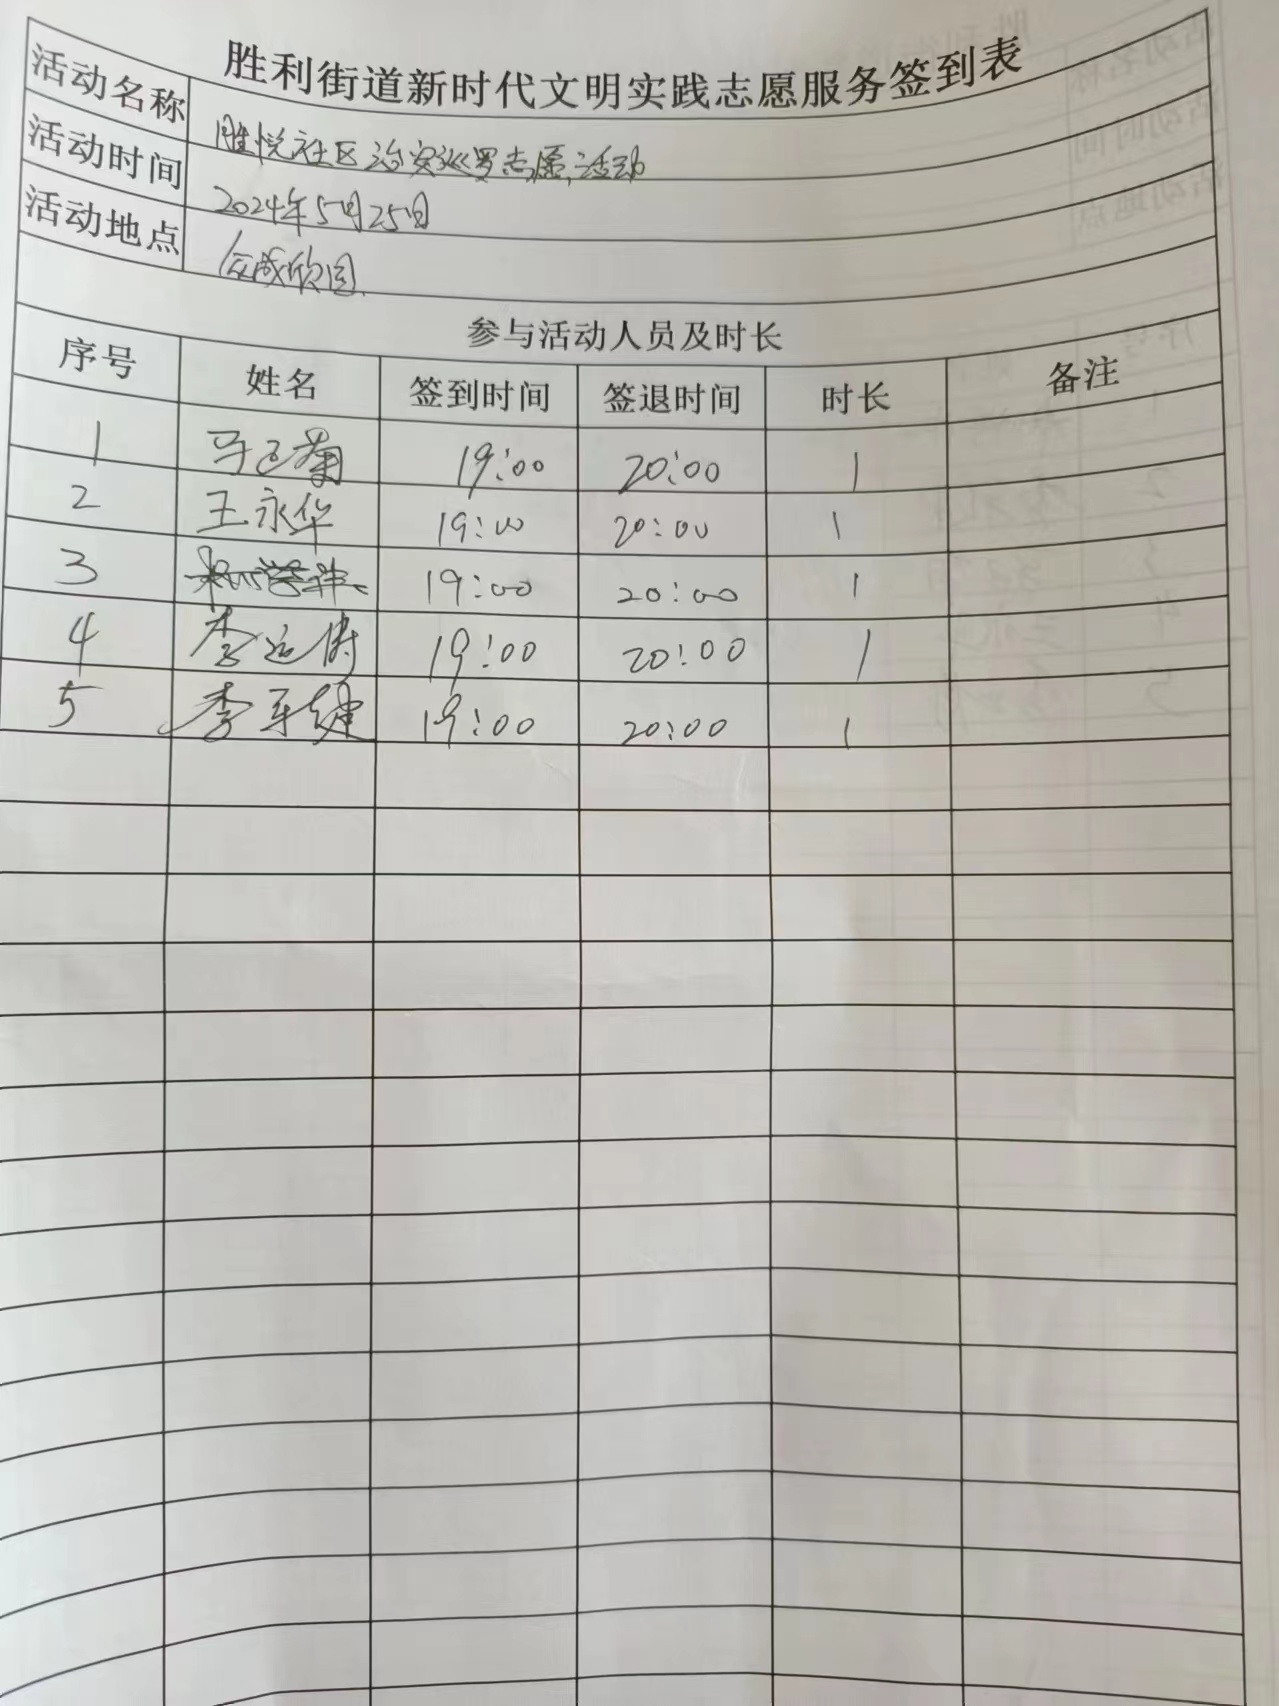 胜利街道新时代文明实践志愿服务签到表
活动名称 胜悦社区治安巡罗志愿活动
活动时间 2024年5月25日
活动地点 合成欣园
参与活动人员及时长
序号 姓名 签到时间 签退时间 时长 备注
1 马 菊 19:00 20:00 1
2 王永华 19:00 20:00 1
3 19:00 20:00 1
4 李 19:00 20:00 1
5 李 19:00 20:00 1